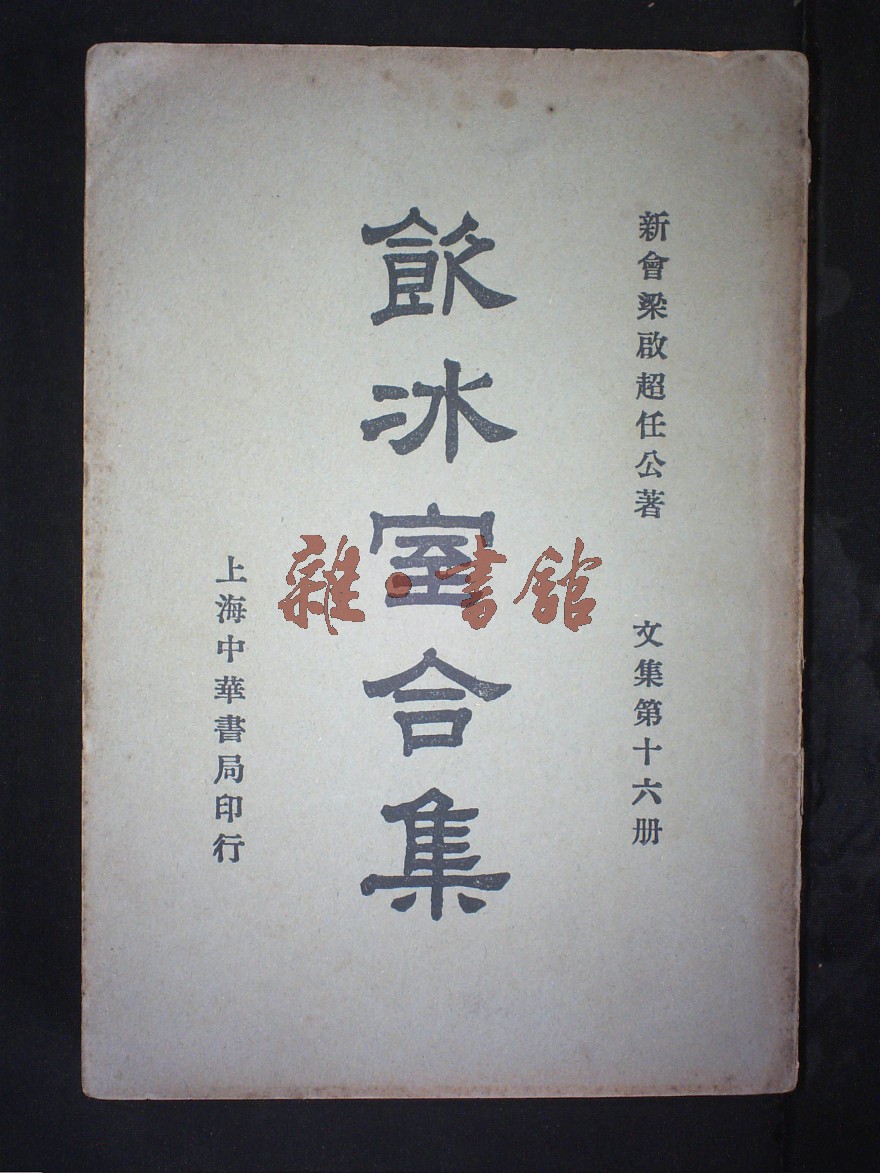 新會梁啟超任公著　　文集第十六册
飲冰室合集
上海中華書局印行
雜·書館